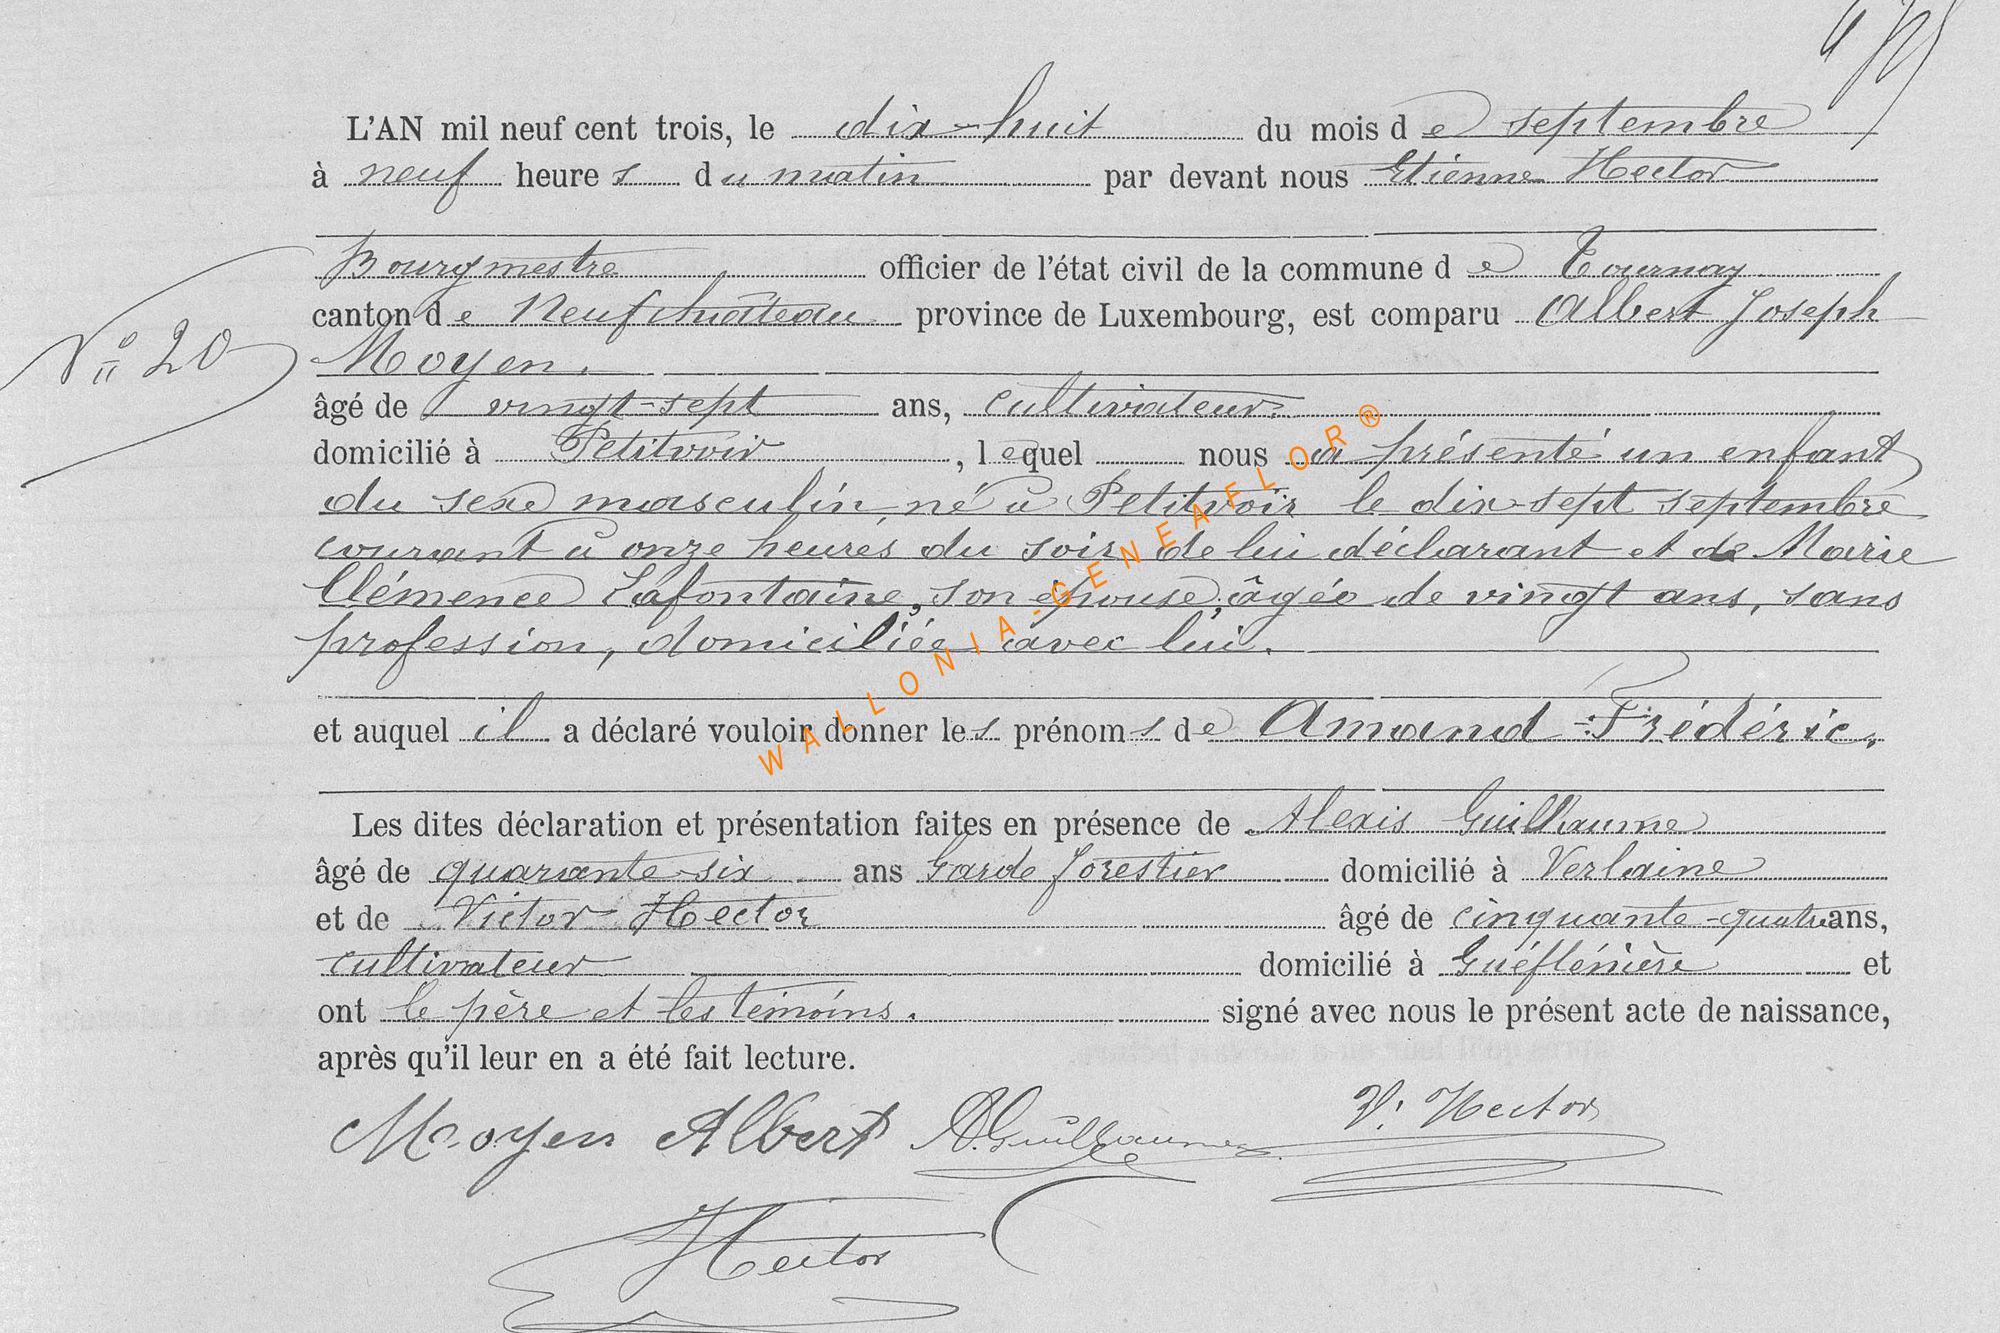 L'AN mil neuf cent trois, le dix-huit du mois de septembre
à neuf heures du matin par devant nous Etienne Hector
Bourgmestre officier de l'état civil de la commune de Tournay
canton de Neufchâteau province de Luxembourg, est comparu Albert Joseph
N° 20 Moyen.
âgé de vingt-sept ans, cultivateur
domicilié à Petitvoir, lequel nous a présenté un enfant
du sexe masculin, né à Petitvoir le dix-sept septembre
courant à onze heures du soir, de lui déclarant et de Marie
Clémence Lafontaine, son épouse, âgée de vingt ans, sans
profession, domiciliée avec lui.
et auquel il a déclaré vouloir donner les prénoms de Amand-Frédéric.
Les dites déclaration et présentation faites en présence de Alexis Guillaume
âgé de quarante-six ans Garde forestier domicilié à Verlaine
et de Victor Hector âgé de cinquante-quatre ans,
cultivateur domicilié à et
ont le père et les témoins. signé avec nous le présent acte de naissance,
après qu'il leur en a été fait lecture.
Moyen Albert A. Guillaume V. Hector
Hector
WALLONIA-GENEAFLOR®